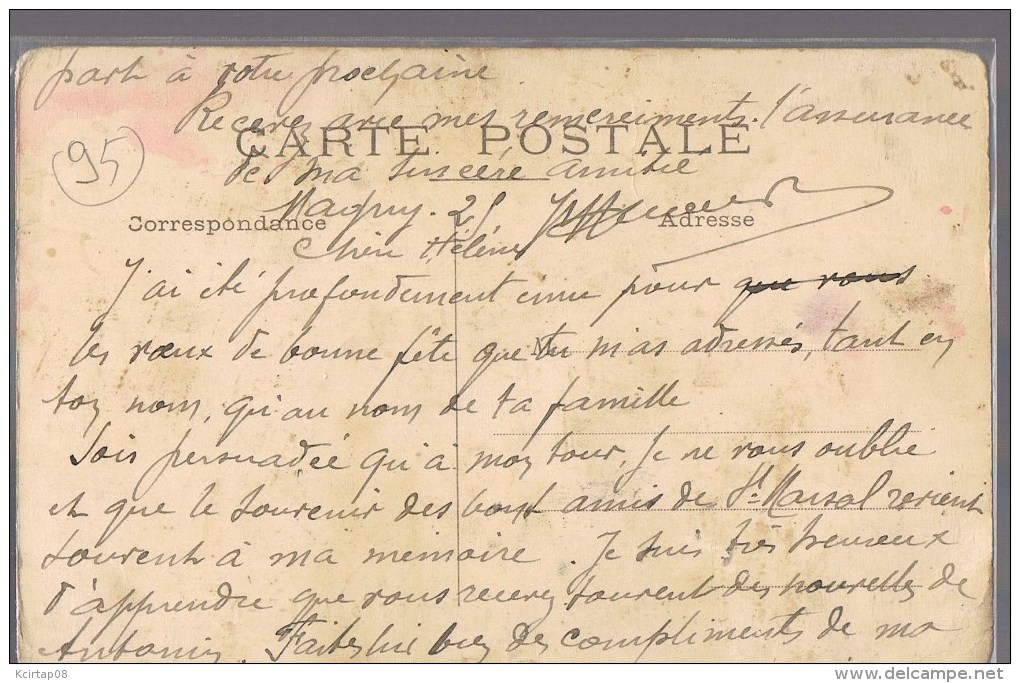 part à votre prochaine
Recevez avec mes remerciements. l'assurance
CARTE POSTALE
95
de ma sincère amitié
Magny. 25
Correspondance
Adresse
Chère Hélène
J'ai été profondement emu pour que vous
les vœux de bonne fête que tu m'as adressés, tant en
M
ton nom, qu'au nom de ta famille
Sois persuadée qu'à mon tour, je ne vous oublie
et que le souvenir des bons amis de St. Marsal revient
souvent à ma mémoire. Je suis très heureux
d'apprendre que vous recevez souvent des nouvelles de
Antonin. Faites lui bien des compliments de ma
Kcirtap08
delcampe.net